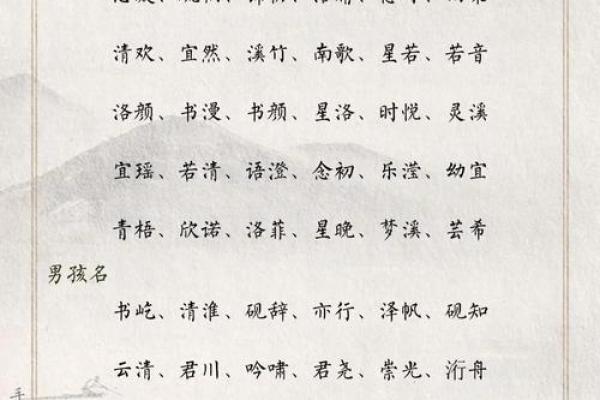 清欢、宜然、溪竹、南歌、星若、若音
洛颜、书漫、书颜、星洛、时悦、灵溪
宜瑶、若清、语澄、念初、乐滢、幼宜
青梧、欣诺、洛菲、星晚、梦溪、芸希
男孩名
书屹、清淮、砚辞、亦行、泽帆、砚知
云清、君川、吟啸、君尧、崇光、洐舟